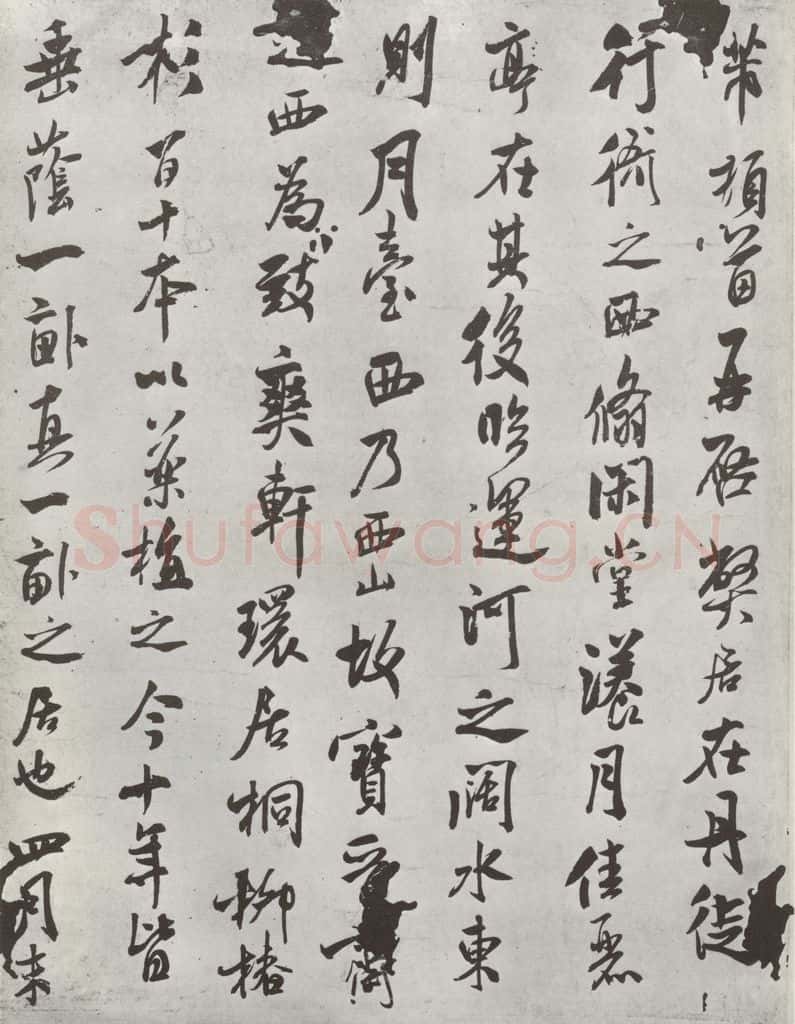 芾頓首再啓弊居在丹徒
行衙之西脩閑堂漾月佳麗
亭在其後臨運河之闊水東
則月臺西乃西山故寶晉齋
之西為致爽軒環居桐柳椿
杉百十本以藥植之今十年皆
垂蔭一畝真一畝之居也四月末
Shufawang.CN